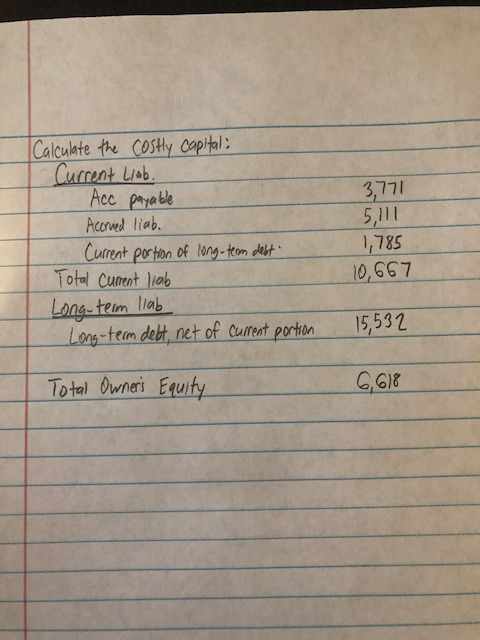 Calculate the costly capital:
Current Liab.
Acc payable 3,771
Accrued liab. 5,111
Current portion of long-term debt. 1,785
Total Current liab 10,667
Long-term liab
Long-term debt, net of current portion 15,532
Total Owner's Equity 6,618